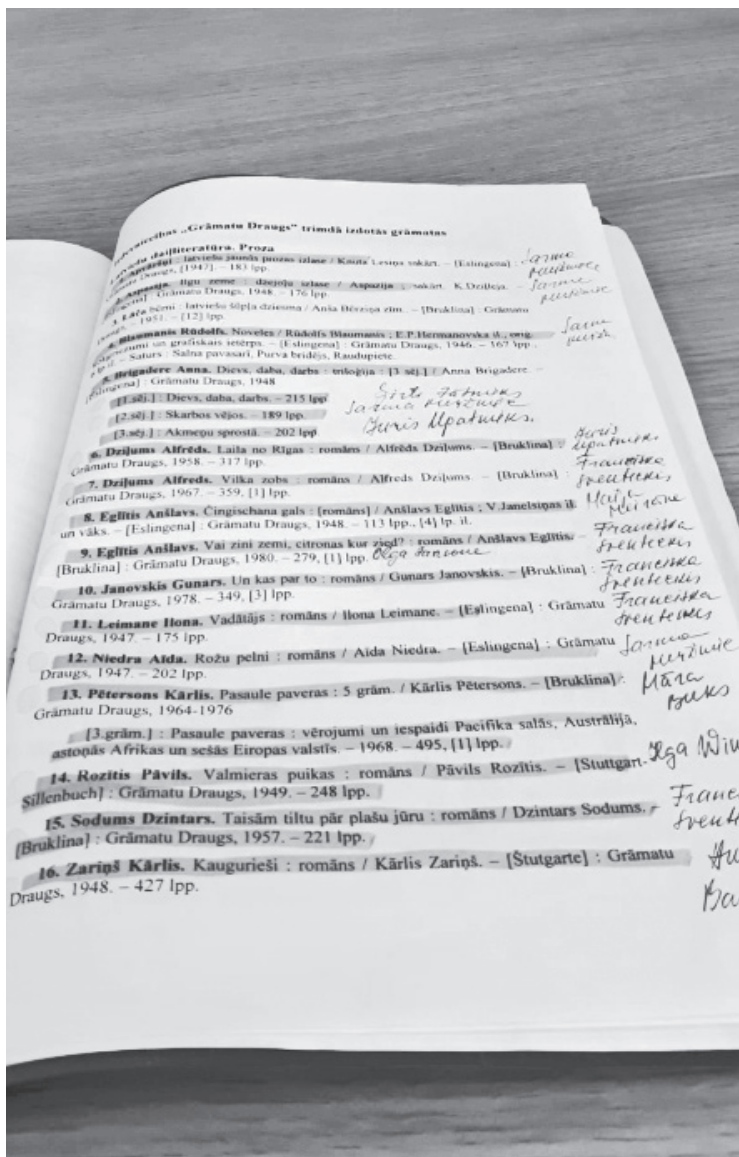 „Grāmatu Draugs“ trimdā izdotās grāmatas
Latviešu daiļliteratūra. Proza
1. Apvāršņi : latviešu jaunās prozas izlase / Knuta Lesiņa sakārt. – [Eslingena] : Sarma
Grāmatu Draugs, [1947]. – 183 lpp.
2. Aspazija. Ilgu zeme : dzejoļu izlase / Aspazija ; sakārt. K.Dziļleja. – Sarma
Grāmatu Draugs, 1948. – 176 lpp.
3. Lāča bērni : latviešu šūpļa dziesma / Anša Bērziņa zīm. – [Bruklina] : Grāmatu
Draugs, – 1951. – [12] lpp.
4. Blaumanis Rūdolfs. Noveles / Rūdolfs Blaumanis ; E.P.Hermanovska il., oriģ. Sarma
un grafiskais ietērps. – [Eslingena] : Grāmatu Draugs, 1946. – 167 lpp.
– Saturs : Salna pavasarī, Purva bridējs, Raudupiete.
5. Brigadere Anna. Dievs, daba, darbs : triloģija : [3 sēj.] / Anna Brigadere. –
[Eslingena] : Grāmatu Draugs, 1948
[1.sēj.] : Dievs, daba, darbs. – 215 lpp
[2.sēj.] : Skarbos vējos. – 189 lpp. Sarma
[3.sēj.] : Akmeņu sprostā. – 202 lpp. Juris Upatnieks.
6. Dziļums Alfrēds. Laila no Rīgas : romāns / Alfrēds Dziļums. – [Bruklina] : Juris
Grāmatu Draugs, 1958. – 317 lpp. Upatnieks
7. Dziļums Alfreds. Vilka zobs : romāns / Alfreds Dziļums. – [Bruklina] : Franciska
Grāmatu Draugs, 1967. – 359, [1] lpp.
8. Eglītis Anšlavs. Čingischana gals : [romāns] / Anšlavs Eglītis ; V.Janelsiņas il. Maija
un vāks. – [Eslingena] : Grāmatu Draugs, 1948. – 113 lpp., [4] lp. il.
9. Eglītis Anšlavs. Vai zini zemi, citronas kur zied? : romāns / Anšlavs Eglītis. – Franciska
[Bruklina] : Grāmatu Draugs, 1980. – 279, [1] lpp. Olga
10. Janovskis Gunars. Un kas par to : romāns / Gunars Janovskis. – [Bruklina] : Franciska
Grāmatu Draugs, 1978. – 349, [3] lpp.
11. Leimane Ilona. Vadātājs : romāns / Ilona Leimane. – [Eslingena] : Grāmatu Franciska
Draugs, 1947. – 175 lpp.
12. Niedra Aīda. Rožu pelni : romāns / Aīda Niedra. – [Eslingena] : Grāmatu Sarma
Draugs, 1947. – 202 lpp.
13. Pētersons Kārlis. Pasaule paveras : 5 grām. / Kārlis Pētersons. – [Bruklina] : Māra
Grāmatu Draugs, 1964-1976 Buks
[3.grām.] : Pasaule paveras : vērojumi un iespaidi Pacifika salās, Austrālijā,
astoņās Āfrikas un sešās Eiropas valstīs. – 1968. – 495, [1] lpp.
14. Rozītis Pāvils. Valmieras puikas : romāns / Pāvils Rozītis. – [Stuttgart-
Sillenbuch] : Grāmatu Draugs, 1949. – 248 lpp.
15. Sodums Dzintars. Taisām tiltu pār plašu jūru : romāns / Dzintars Sodums. –
[Bruklina] : Grāmatu Draugs, 1957. – 221 lpp.
16. Zariņš Kārlis. Kaugurieši : romāns / Kārlis Zariņš. – [Štutgarte] : Grāmatu
Draugs, 1948. – 427 lpp.